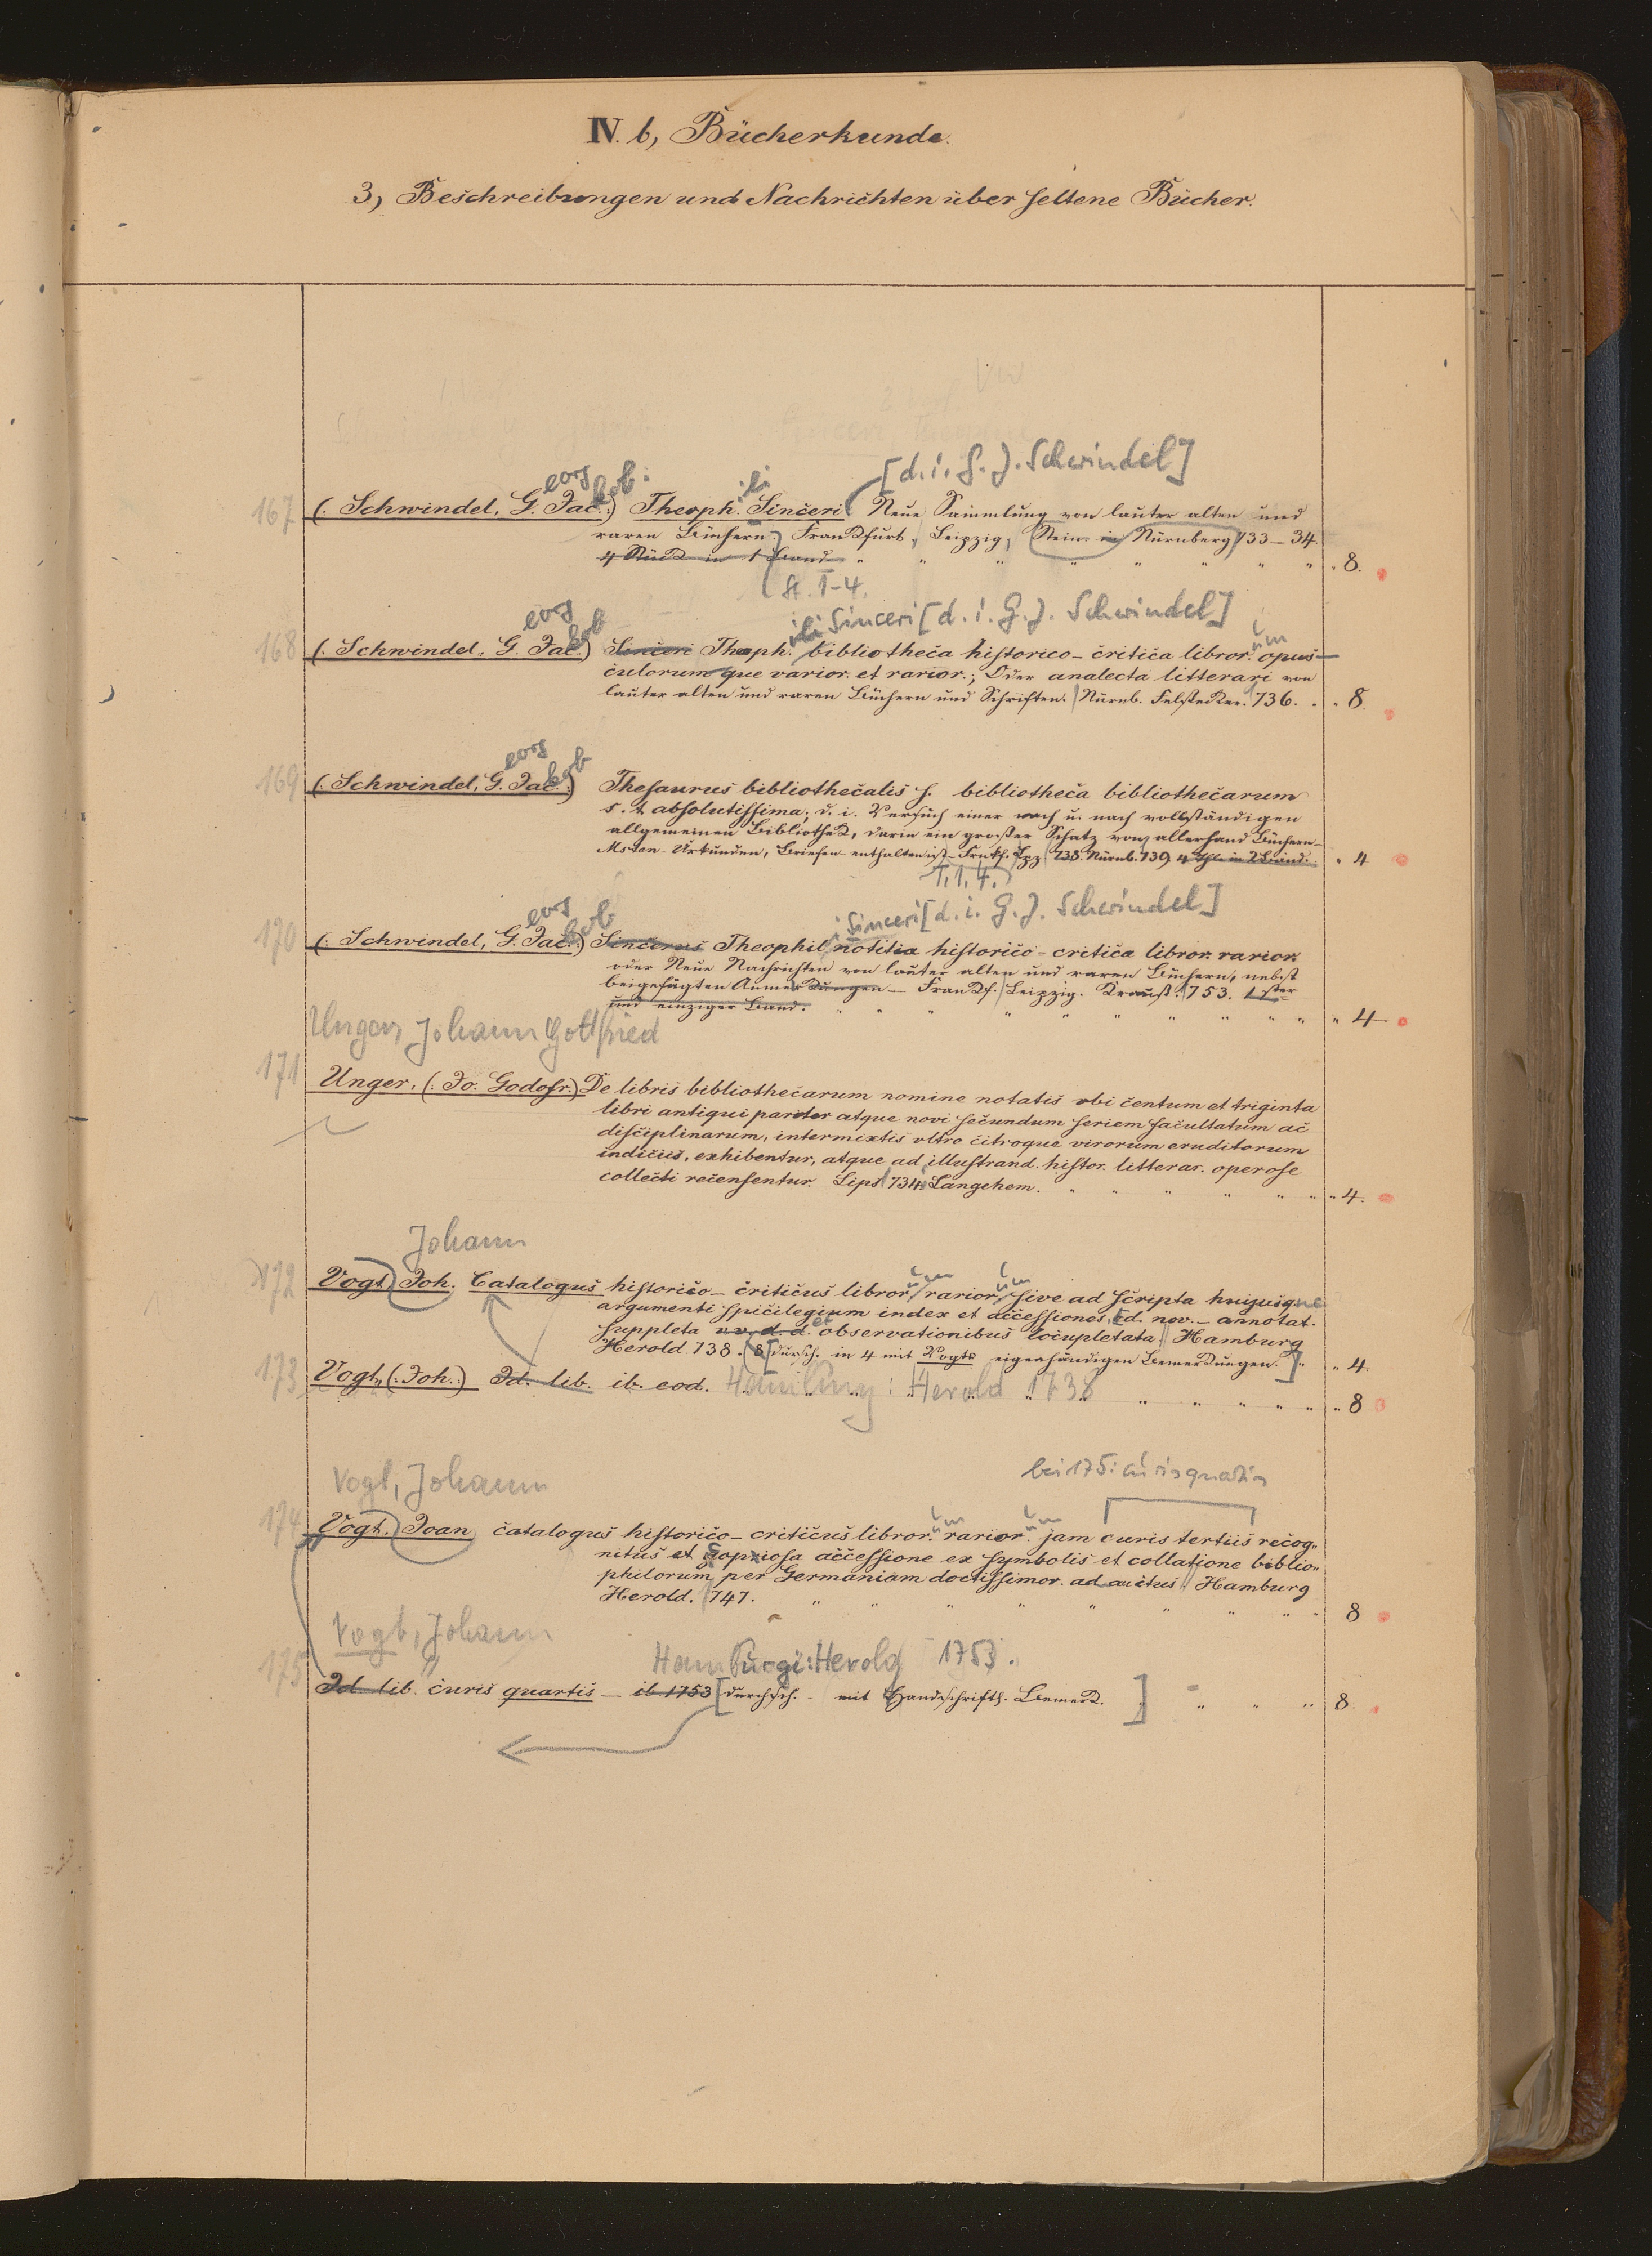 IV. b, Bücherkunde.
3, Beschreibungen und Nachrichten über seltene Bücher.
[d. i. G. J. Schwindel]
eorg kob.
ili
167 (: Schwindel, G. Jac :) Theoph. Sinceri Neue Sammlung von lauter alten und
raren Büchern. Frankfurt, Leipzig, Stein in Nürnberg 733–34.
4 Stück in 1 Band " " " " " " " " 8.
St. 1–4.
eorg kob
ili Sinceri [d. i. G. J. Schwindel]
um
168 (: Schwindel, G. Jac:) Sinceri Theoph. bibliotheca historico-critica libror. opus-
culorumque varior. et rarior.; Oder analecta litterari von
lauter alten und raren Büchern und Schriften. Nürnb. Felßecker. 736. " " 8.
eorg kob
169 (: Schwindel, G. Jac:) Thesaurus bibliothecalis s. bibliotheca bibliothecarum
absolutissima; d. i. Versuch einer nach u. nach vollständigen
allgemeinen Bibliothek, darin ein großer Schatz von allerhand Büchern-
Msten- Urkunden, Briefen enthalten ist – Frnkf. Lpz 738. Nürnb. 739 4 Thle in 2 Bänd. " 4
T. 1. 4.
eorg kob
i Sinceri [d. i. G. J. Schwindel]
170 (: Schwindel, G. Jac:) Sincerus Theophil. notitia historico-critica libror. rarior.
oder Neue Nachrichten von lauter alten und raren Büchern, nebst
beigefügten Anmerkungen – Frankf. Leipzig. Krauß. 753. 1ster
und einziger Band. " " " " " " " " " " 4
Unger, Johann Gottfried
171 Unger, (: Jo. Godofr.) De libris bibliothecarum nomine notatis vbi centum et triginta
libri antiqui pariter atque novi secundum seriem facultatum ac
disciplinarum, intermixtis vltro citroque virorum eruditorum
indiciis, exhibentur, atque ad illustrand. histor. litterar. operose
collecti recensentur. Lips 734. Langehem. " " " " " " " 4.
Johann
um um
172 Vogt Joh. Catalogus historico-criticus libror. rarior. sive ad scripta huiusque
argumenti spicilegium index et accessiones, Ed. nov. – annotat.
et
suppleta v. v. d. d. observationibus locupletata. Hamburg
Herold. 738. 8 [dursch. in 4 mit Vogts eigenhändigen Bemerkungen.] " " 4.
173 Vogt, (: Joh.:) Id. lib. ib. eod. Hamburg: Herold 1738 " " " " " " 8
Vogt, Johann
bei 175: curis quartis
um um
174 Vogt. Joan catalogus historico-criticus libror. rarior. jam curis tertiis recog-
nitus et copiosa accessione ex symbolis et collatione biblio-
philorum per Germaniam doctissimor. adauctus. Hamburg
Herold. 747. " " " " " " " " " 8
Vogt, Johann
Hamburgi: Herold 1753.
175 Id. lib. curis quartis – ib 1753 [durchsch. – mit Handschriftl. Bemerk. ] " " " 8.